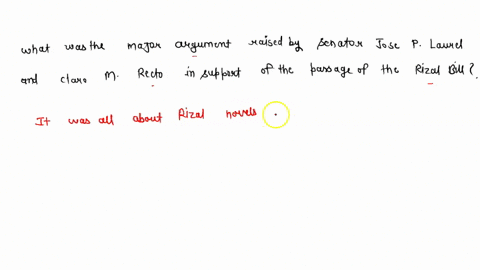 what was the major argument raised by Senator Jose P. Laurel
and claro M. Recto in support of the passage of the Rizal Bill?
It was all about Rizal novels